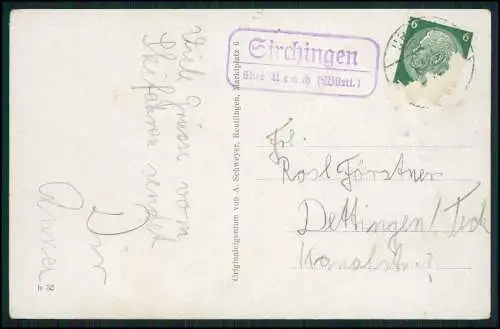 Viele Grüsse vom
Skifahren sendet
Dir
Anna
Originaleigentum von A. Schweyer, Reutlingen, Marktplatz 6
Sirchingen
über Urach (Württ.)
6 6
Frl.
Rosl Förstner
Dettingen/Teck
Kanalstr.